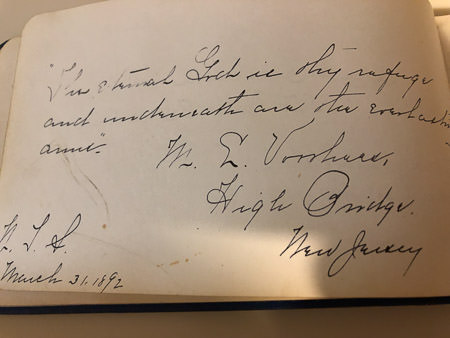 "The eternal God is thy refuge
and underneath are the everlasting
arms".
M. E. Voorhees,
High Bridge.
New Jersey
N. S. S.
March 31. 1892